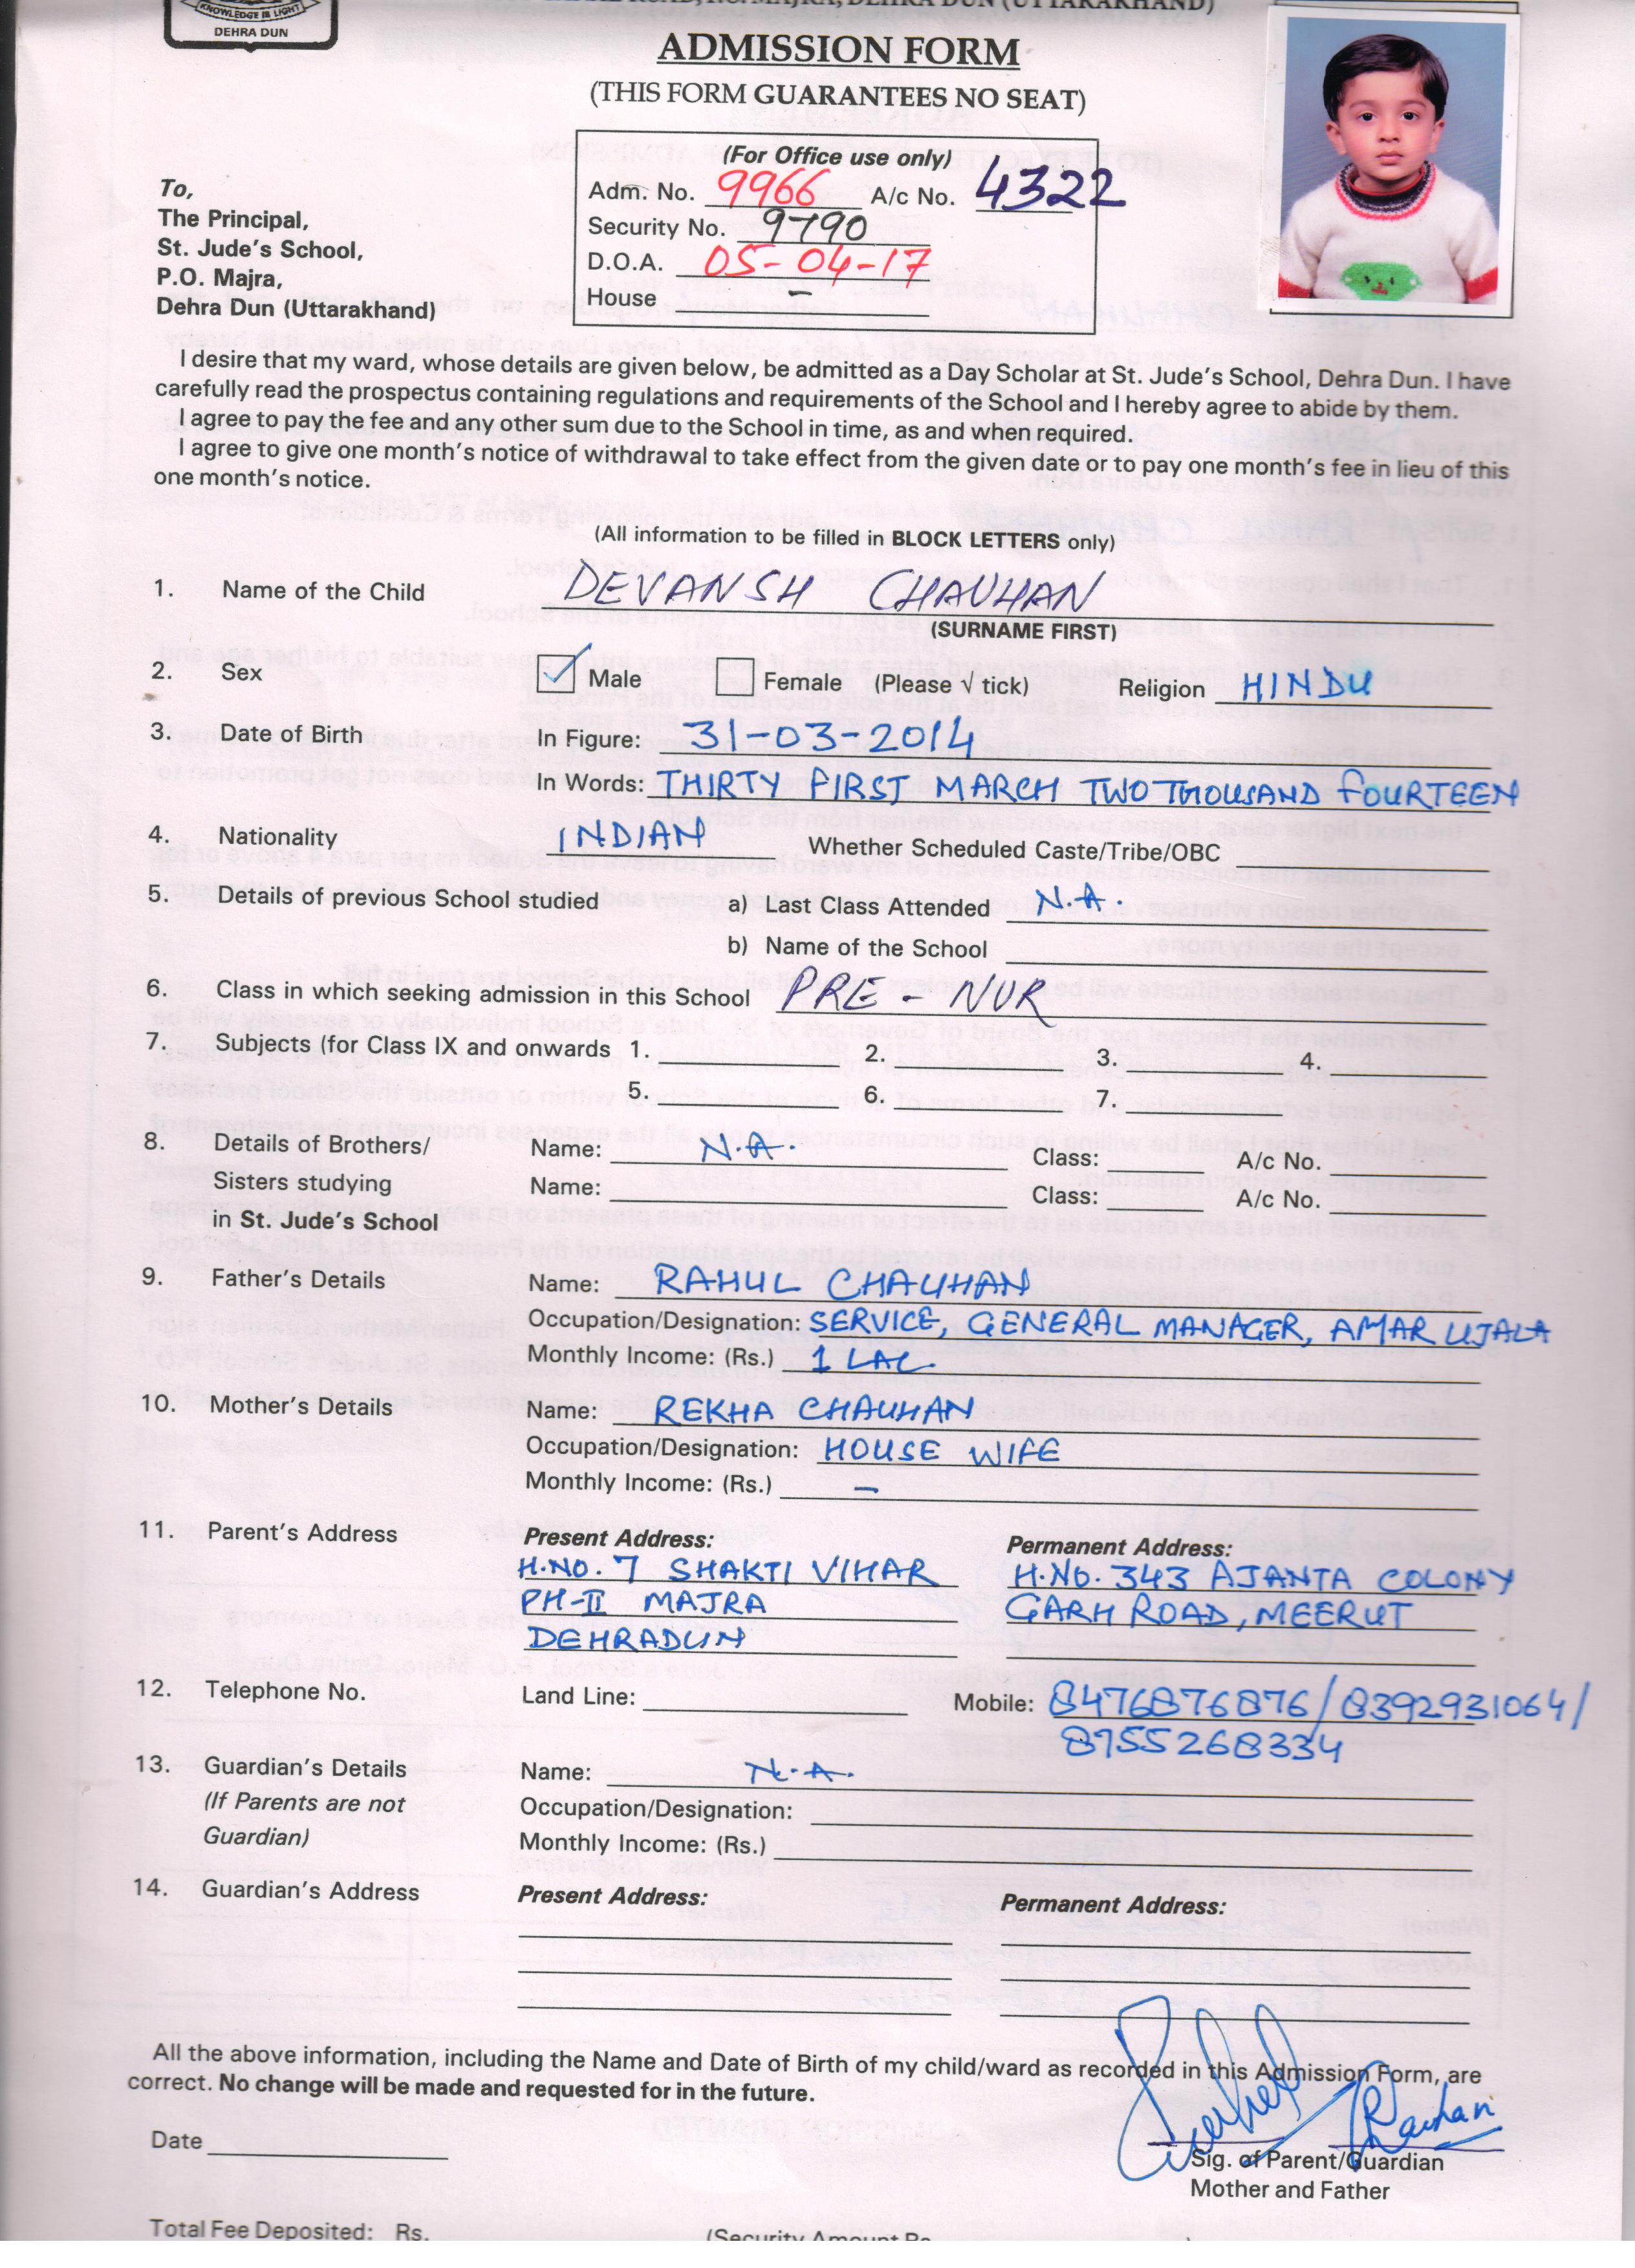 KNOWLEDGE IS LIGHT
DEHRA DUN
ROAD, P.O. MAJRA, DEHRA DUN (UTTARAKHAND)
ADMISSION FORM
(THIS FORM GUARANTEES NO SEAT)
(For Office use only)
Adm. No. 9966 A/c No. 4322
Security No. 9790
D.O.A. 05-04-17
House –
To,
The Principal,
St. Jude's School,
P.O. Majra,
Dehra Dun (Uttarakhand)
I desire that my ward, whose details are given below, be admitted as a Day Scholar at St. Jude's School, Dehra Dun. I have
carefully read the prospectus containing regulations and requirements of the School and I hereby agree to abide by them.
I agree to pay the fee and any other sum due to the School in time, as and when required.
I agree to give one month's notice of withdrawal to take effect from the given date or to pay one month's fee in lieu of this
one month's notice.
(All information to be filled in BLOCK LETTERS only)
1. Name of the Child DEVANSH CHAUHAN
(SURNAME FIRST)
2. Sex Male Female (Please √ tick) Religion HINDU
3. Date of Birth In Figure: 31-03-2014
In Words: THIRTY FIRST MARCH TWO THOUSAND FOURTEEN
4. Nationality INDIAN Whether Scheduled Caste/Tribe/OBC
5. Details of previous School studied a) Last Class Attended N.A.
b) Name of the School
6. Class in which seeking admission in this School PRE - NUR
7. Subjects (for Class IX and onwards 1. 2. 3. 4.
5. 6. 7.
8. Details of Brothers/ Name: N.A. Class: A/c No.
Sisters studying Name: Class: A/c No.
in St. Jude's School
9. Father's Details Name: RAHUL CHAUHAN
Occupation/Designation: SERVICE, GENERAL MANAGER, AMAR UJALA
Monthly Income: (Rs.) 1 LAC.
10. Mother's Details Name: REKHA CHAUHAN
Occupation/Designation: HOUSE WIFE
Monthly Income: (Rs.) –
11. Parent's Address Present Address: Permanent Address:
H.NO. 7 SHAKTI VIHAR H.NO. 343 AJANTA COLONY
PH-II MAJRA GARH ROAD, MEERUT
DEHRADUN
12. Telephone No. Land Line: Mobile: 8476876876/8392931064/
8755268334
13. Guardian's Details Name: N.A.
(If Parents are not Occupation/Designation:
Guardian) Monthly Income: (Rs.)
14. Guardian's Address Present Address: Permanent Address:
All the above information, including the Name and Date of Birth of my child/ward as recorded in this Admission Form, are
correct. No change will be made and requested for in the future.
Date
Sig. of Parent/Guardian
Mother and Father
Total Fee Deposited: Rs. (Security Amount Rs.